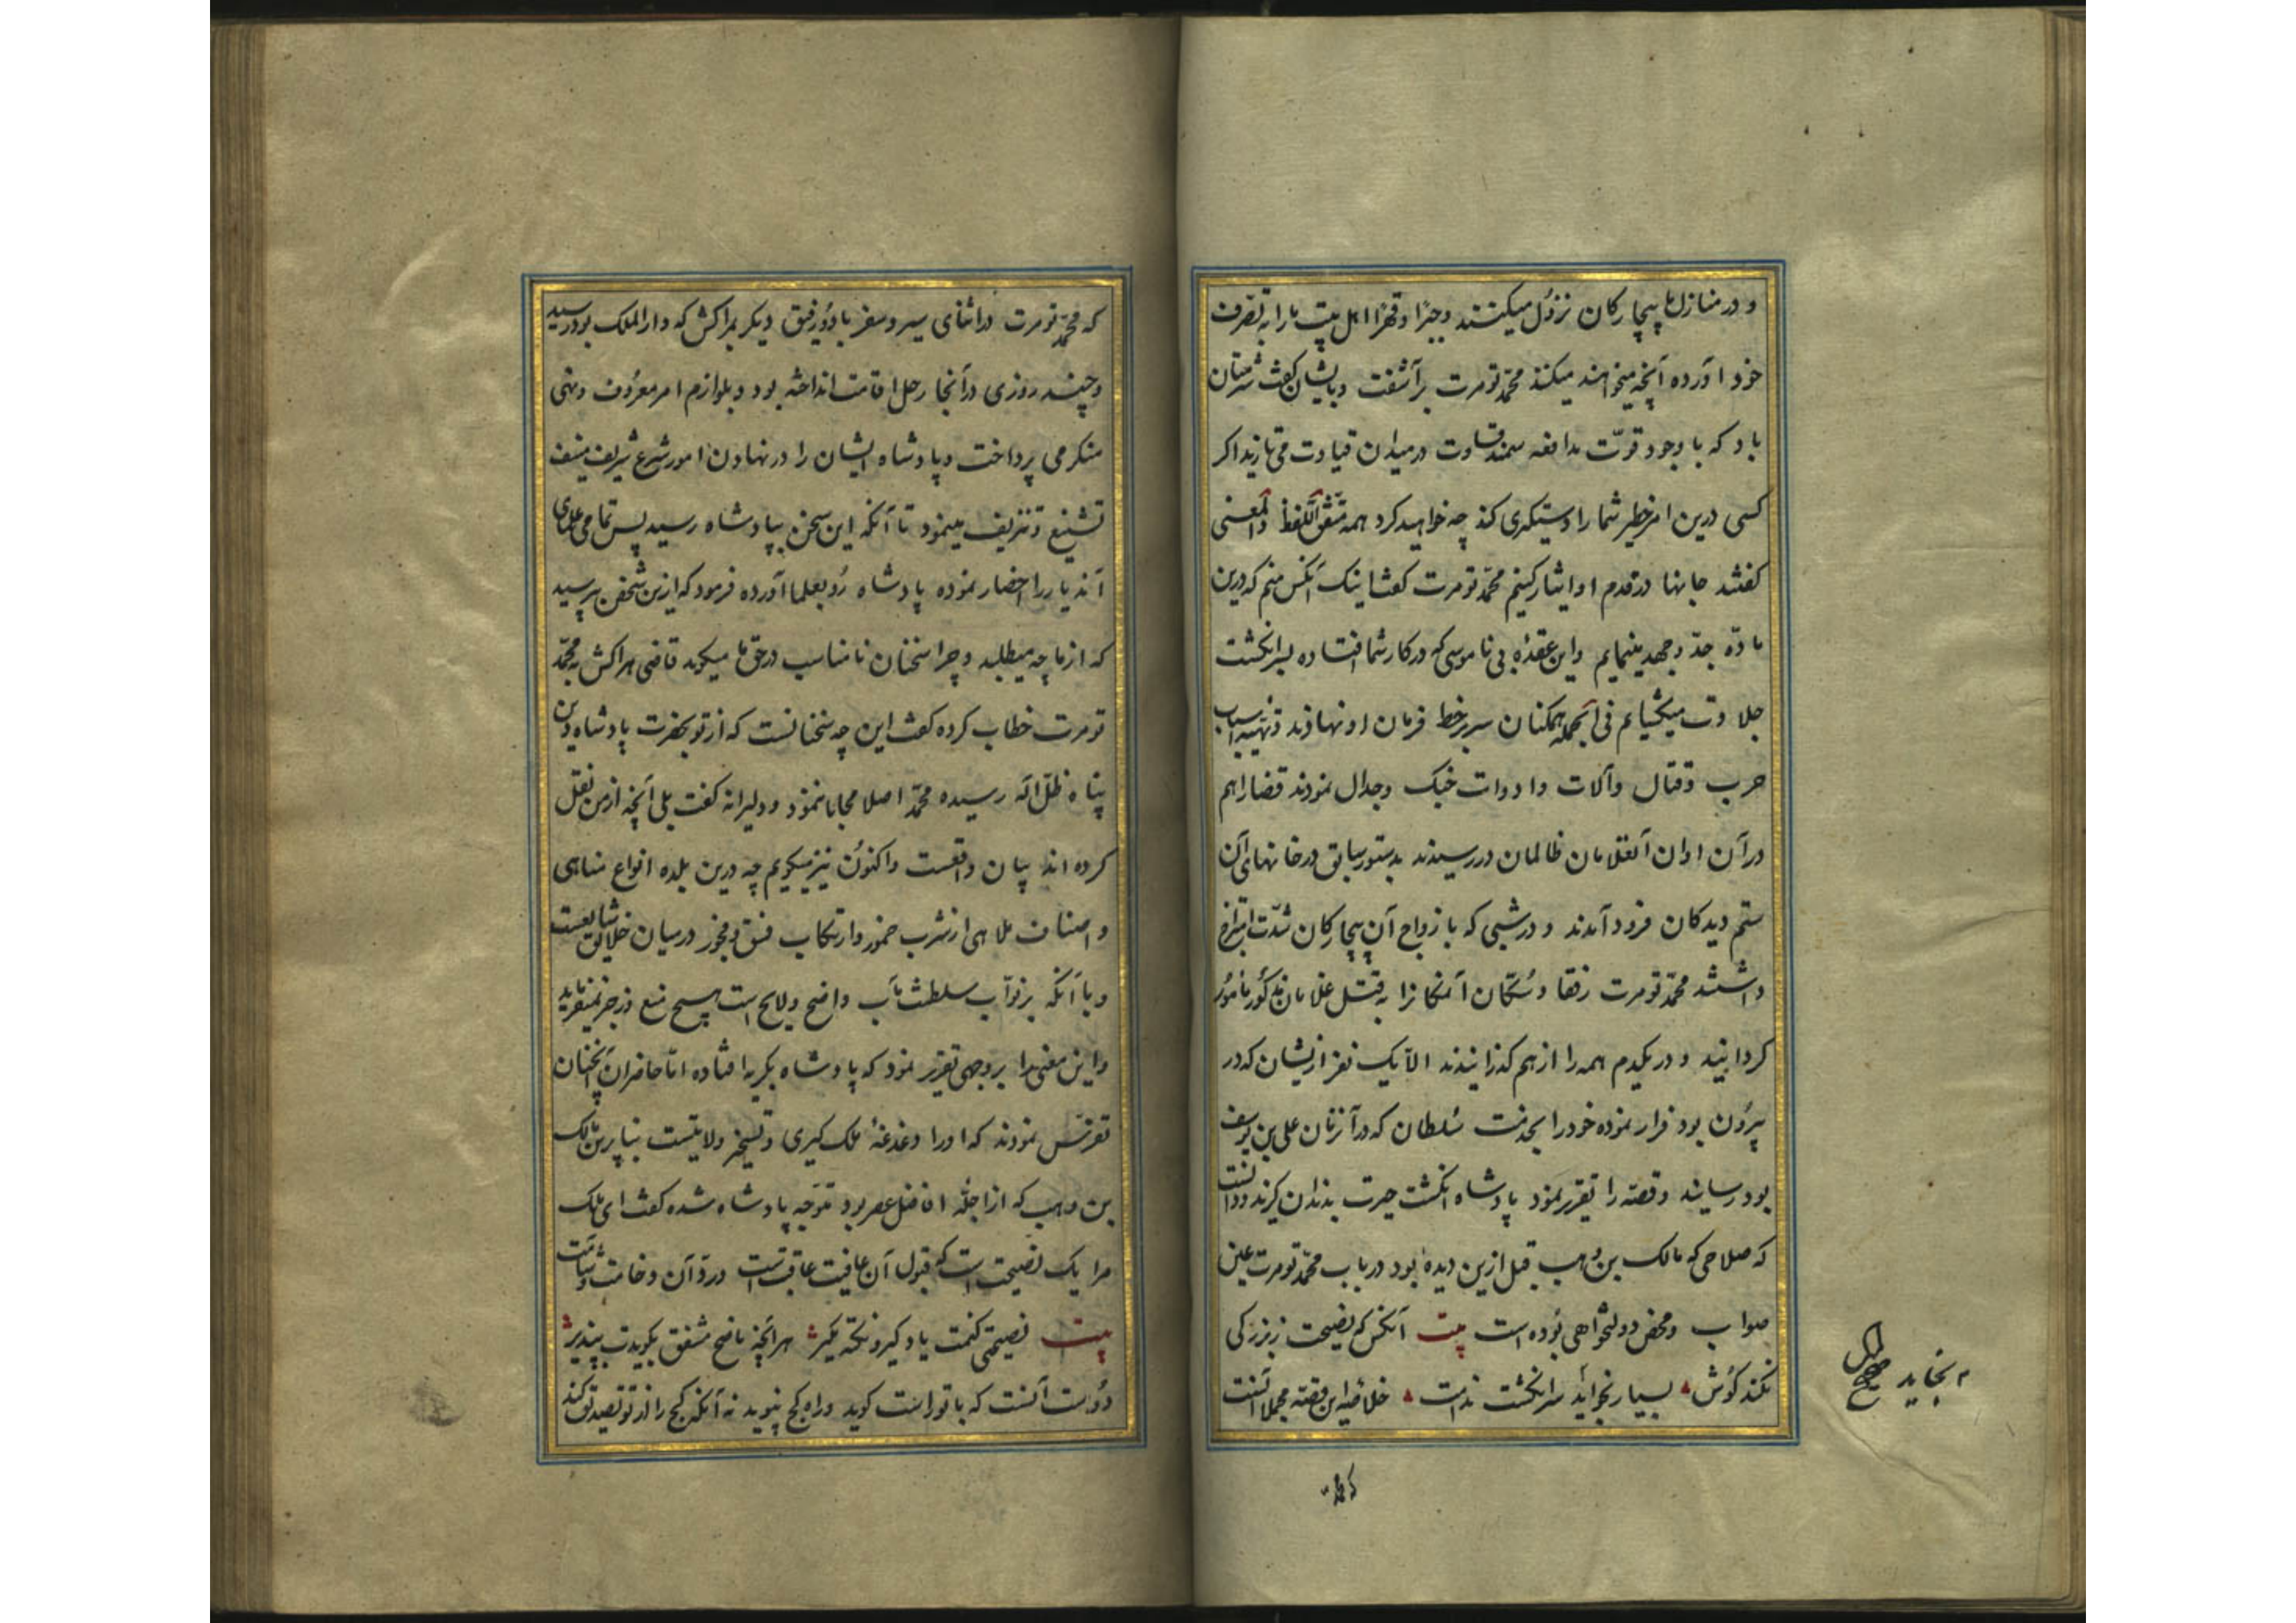 و در منازل ما بیچارکان نزول میکنند وجبرًا وقهرًا اهل بیت ما را به تصرف
خود آورده آنچه میخواهند میکنند محمد تومرت برآشفت وبایشان کفت شرمتان
باد که با وجود قوت مدافعه سمند قساوت در میدان قیادت می تازید اکر
کسی درین امر خطیر شما را دستکیری کند چه خواهید کرد همه متفق اللفظ والمعنی
کفتند جانها در قدم او ایثار کنیم محمد تومرت کفت اینک آنکس منم که درین
ماده جد وجهد مینمایم واین عقدۀ بی ناموسی که در کار شما افتاده بسرانکشت
جلادت میکشایم فی الجمله همکنان سر بر خط فرمان او نهادند وتهیه اسباب
حرب وقتال وآلات وادوات جنک وجدال نمودند قضا را هم
در آن اوان آنغلامان ظالمان در رسیدند بدستور سابق در خانهای آن
ستم دیدکان فرود آمدند و در شبی که با ازواج آن بیچارکان شدت امتزاج
داشتند محمد تومرت رفقا وسکان آنمکانرا به قتل غلامان مذکور مأمور
کردانید و در یکدم همه را از هم کذرانیدند الا یک نفر ازیشان که در
بیرون بود فرار نموده خود را بخدمت سلطان که در آنزمان علی بن یوسف
بود رسانید وقصه را تقریر نمود پادشاه انکشت حیرت بدندان کزید ودانست
که صلاحی که مالک بن وهب قبل ازین دیده بود در باب محمد تومرت عین
صواب ومحض دولتخواهی بوده است بیت آنکس که نصیحت ز بزرکی
نکند کوش بسیار نخواید سر انکشت ندامت خلاصۀ این قصه مجملا آنست
م بخاید صح
که محمد
که محمد تومرت در اثنای سیر وسفر با دو رفیق دیکر بمراکش که دار الملک بود رسید
وچند روزی در آنجا رحل اقامت انداخته بود وبلوازم امر معروف ونهی
منکر می پرداخت وپادشاه ایشان را در نهادن امور شرع شریف
تشنیع وتزییف مینمود تا آنکه این سخن بپادشاه رسید پس تمامی علمای
آندیار را احضار نموده پادشاه رو بعلما آورده فرمود که ازین شخص بپرسید
که از ما چه میطلبد وچرا سخنان نامناسب در حق ما میکوید قاضی مراکش به محمد
تومرت خطاب کرده کفت این چه سخنانست که از تو بحضرت پادشاه دین
پناه ظل اله رسیده محمد اصلا محابا ننمود ودلیرانه کفت بلی آنچه از من نقل
کرده اند بیان واقعست واکنون نیز میکویم چه درین بلده انواع مناهی
واصناف ملاهی از شرب خمور وارتکاب فسق وفجور در میان خلایق شایعست
وبا آنکه بر نواب سلطنت مآب واضح ولایح است هیچ منع وزجر نمیفرماید
واین معنی را بروجهی تقریر نمود که پادشاه بکریه افتاده اما حاضران آنچنان
تفرس نمودند که او را دغدغۀ ملک کیری وتسخیر ولایتست بنابرین مالک
بن وهب که از اجلۀ افاضل عصر بود متوجه پادشاه شده کفت ای ملک
مرا یک نصیحت است که قبول آن عافیت عاقبتست ورد آن وخامت وشئامت
بیت نصیحتی کنمت یاد کیر ونکته مکیر هر آنچه ناصح مشفق بکویدت بپذیر
دوست آنست که با تو راست کوید وراه کج نپوید نه آنکه کج را از تو تصدیق کند